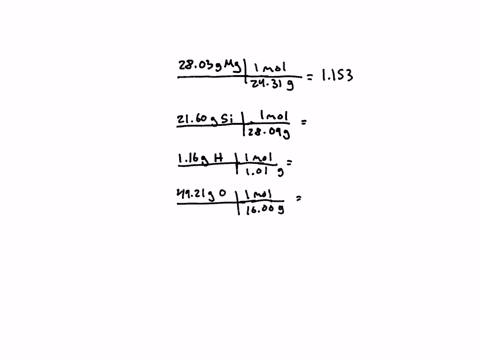 28.03 g Mg | 1 mol / 24.31 g = 1.153
21.60 g Si | 1 mol / 28.09 g =
1.16 g H | 1 mol / 1.01 g =
49.21 g O | 1 mol / 16.00 g =